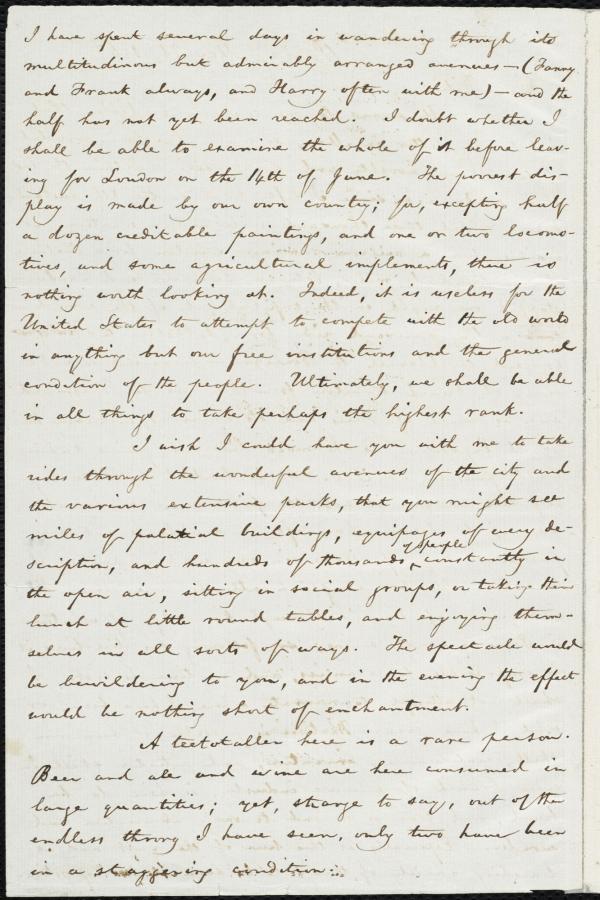 I have spent several days in wandering through its
multitudinous but admirably arranged avenues—(Fanny
and Frank always, and Harry often with me)—and the
half has not yet been reached. I doubt whether I
shall be able to examine the whole of it before leav-
ing for London on the 14th of June. The poorest dis-
play is made by our own country; for, excepting half
a dozen creditable paintings, and one or two locomo-
tives, and some agricultural implements, there is
nothing worth looking at. Indeed, it is useless for the
United States to attempt to compete with the old world
in anything but our free institutions and the general
condition of the people. Ultimately, we shall be able
in all things to take perhaps the highest rank.
I wish I could have you with me to take
rides through the wonderful avenues of the city and
the various extensive parks, that you might see
miles of palatial buildings, equipages of every de-
scription, and hundreds of thousands of people constantly in
the open air, sitting in social groups, or taking their
lunch at little round tables, and enjoying them-
selves in all sorts of ways. The spectacle would
be bewildering to you, and in the evening the effect
would be nothing short of enchantment.
A teetotaller here is a rare person.
Beer and ale and wine are here consumed in
large quantities; yet, strange to say, out of the
endless throng I have seen, only two have been
in a staggering condition.